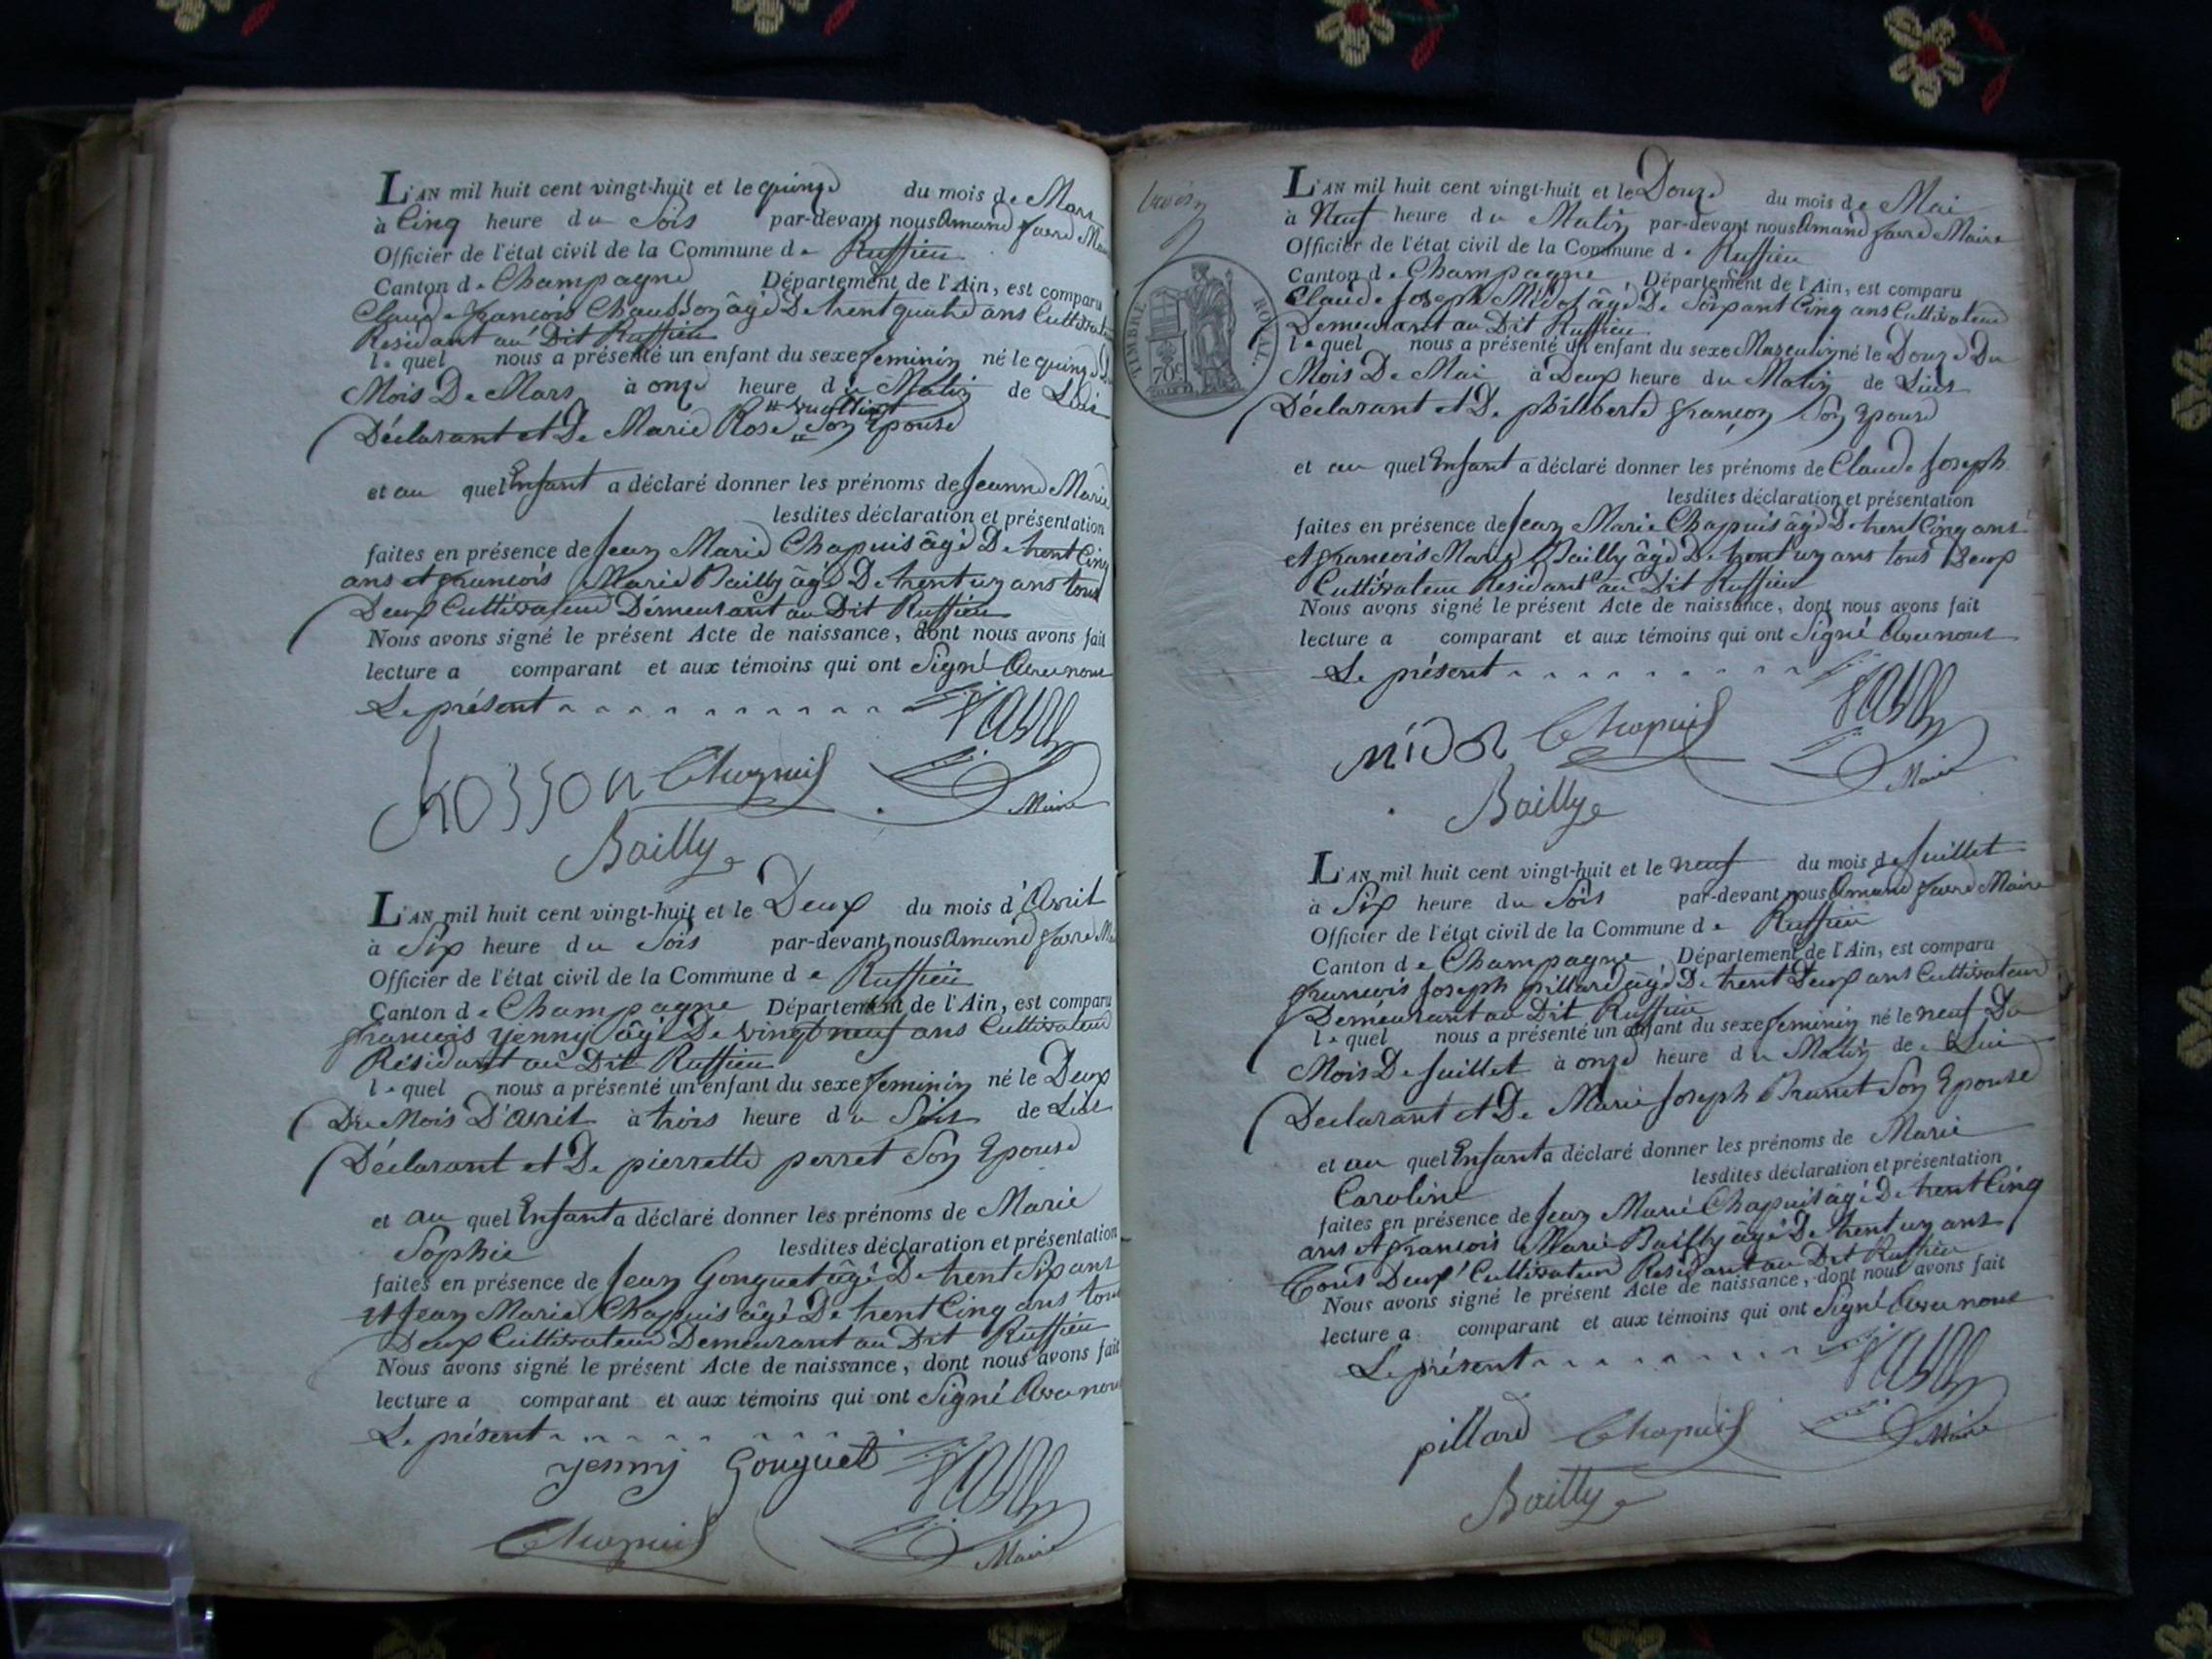 L'AN mil huit cent vingt-huit et le quinze du mois de Mars
à Cinq heure du Soir par-devant nous Amand favre
Officier de l'état civil de la Commune de Ruffieu
Canton de Champagne Département de l'Ain, est comparu
Claude françois Chausson âgé De trent quatre ans Cultivateur
Résidant au Dit Ruffieu
lequel nous a présenté un enfant du sexe feminin né le quinze
Mois De Mars à onze heure du Matin de Lui
Déclarant et De Marie Rose Son Epouse
et au quel Enfant a déclaré donner les prénoms de Jeanne Marie
lesdites déclaration et présentation
faites en présence de Jean Marie Chapuis âgé De trent Cinq
ans et françois Marie Bailly âgé De trent un ans tous
Deux Cultivateur Démeurant au Dit Ruffieu
Nous avons signé le présent Acte de naissance, dont nous avons fait
lecture a comparant et aux témoins qui ont Signé Avec nous
Le présent
Chosson Chapuis
Maire
Bailly
L'AN mil huit cent vingt-huit et le Deux du mois d'Avril
à Six heure du Soir par-devant nous Amand favre
Officier de l'état civil de la Commune de Ruffieu
Canton de Champagne Département de l'Ain, est comparu
françois yenny âgé De vingt neuf ans Cultivateur
Résidant au Dit Ruffieu
lequel nous a présenté un enfant du sexe feminin né le Deux
Du Mois D'avril à trois heure du Soir de Lui
Déclarant et De pierrette perret Son Epouse
et au quel Enfant a déclaré donner les prénoms de Marie
Sophie lesdites déclaration et présentation
faites en présence de Jean Gonguet âgé De trent Six ans
et Jean Marie Chapuis âgé De trent Cinq ans tous
Deux Cultivateur Demeurant au Dit Ruffieu
Nous avons signé le présent Acte de naissance, dont nous avons fait
lecture a comparant et aux témoins qui ont Signé Avec nous
Le présent
yenny Gonguet
Chapuis Maire
TIMBRE ROYAL
70c
L'AN mil huit cent vingt-huit et le Douze du mois de Mai
à Neuf heure du Matin par-devant nous Amand favre Maire
Officier de l'état civil de la Commune de Ruffieu
Canton de Champagne Département de l'Ain, est comparu
Claude Joseph Midol âgé De Soixant Cinq ans Cultivateur
Demeurant au Dit Ruffieu
lequel nous a présenté un enfant du sexe Masculin né le Douze Du
Mois De Mai à Deux heure du Matin de Lui
Déclarant et De philiberte françon Son Epouse
et au quel Enfant a déclaré donner les prénoms de Claude Joseph
lesdites déclaration et présentation
faites en présence de Jean Marie Chapuis âgé De trent Cinq ans
et françois Marie Bailly âgé De trent un ans tous Deux
Cultivateur Résidant au Dit Ruffieu
Nous avons signé le présent Acte de naissance, dont nous avons fait
lecture a comparant et aux témoins qui ont Signé Avec nous
Le présent
midol Chapuis
Maire
Bailly
L'AN mil huit cent vingt-huit et le neuf du mois de Juillet
à Six heure du Soir par-devant nous Amand favre Maire
Officier de l'état civil de la Commune de Ruffieu
Canton de Champagne Département de l'Ain, est comparu
francois Joseph pillard âgé De trent Deux ans Cultivateur
Demeurant au Dit Ruffieu
lequel nous a présenté un enfant du sexe feminin né le neuf Du
Mois De Juillet à onze heure du Matin de Lui
Declarant et De Marie Joseph Brunet Son Epouse
et au quel Enfant a déclaré donner les prénoms de Marie
Caroline lesdites déclaration et présentation
faites en présence de Jean Marie Chapuis âgé De trent Cinq
ans et francois Marie Bailly âgé De trent un ans
tous Deux Cultivateur Résidant au Dit Ruffieu
Nous avons signé le présent Acte de naissance, dont nous avons fait
lecture a comparant et aux témoins qui ont Signé Avec nous
Le présent
pillard Chapuis
Maire
Bailly